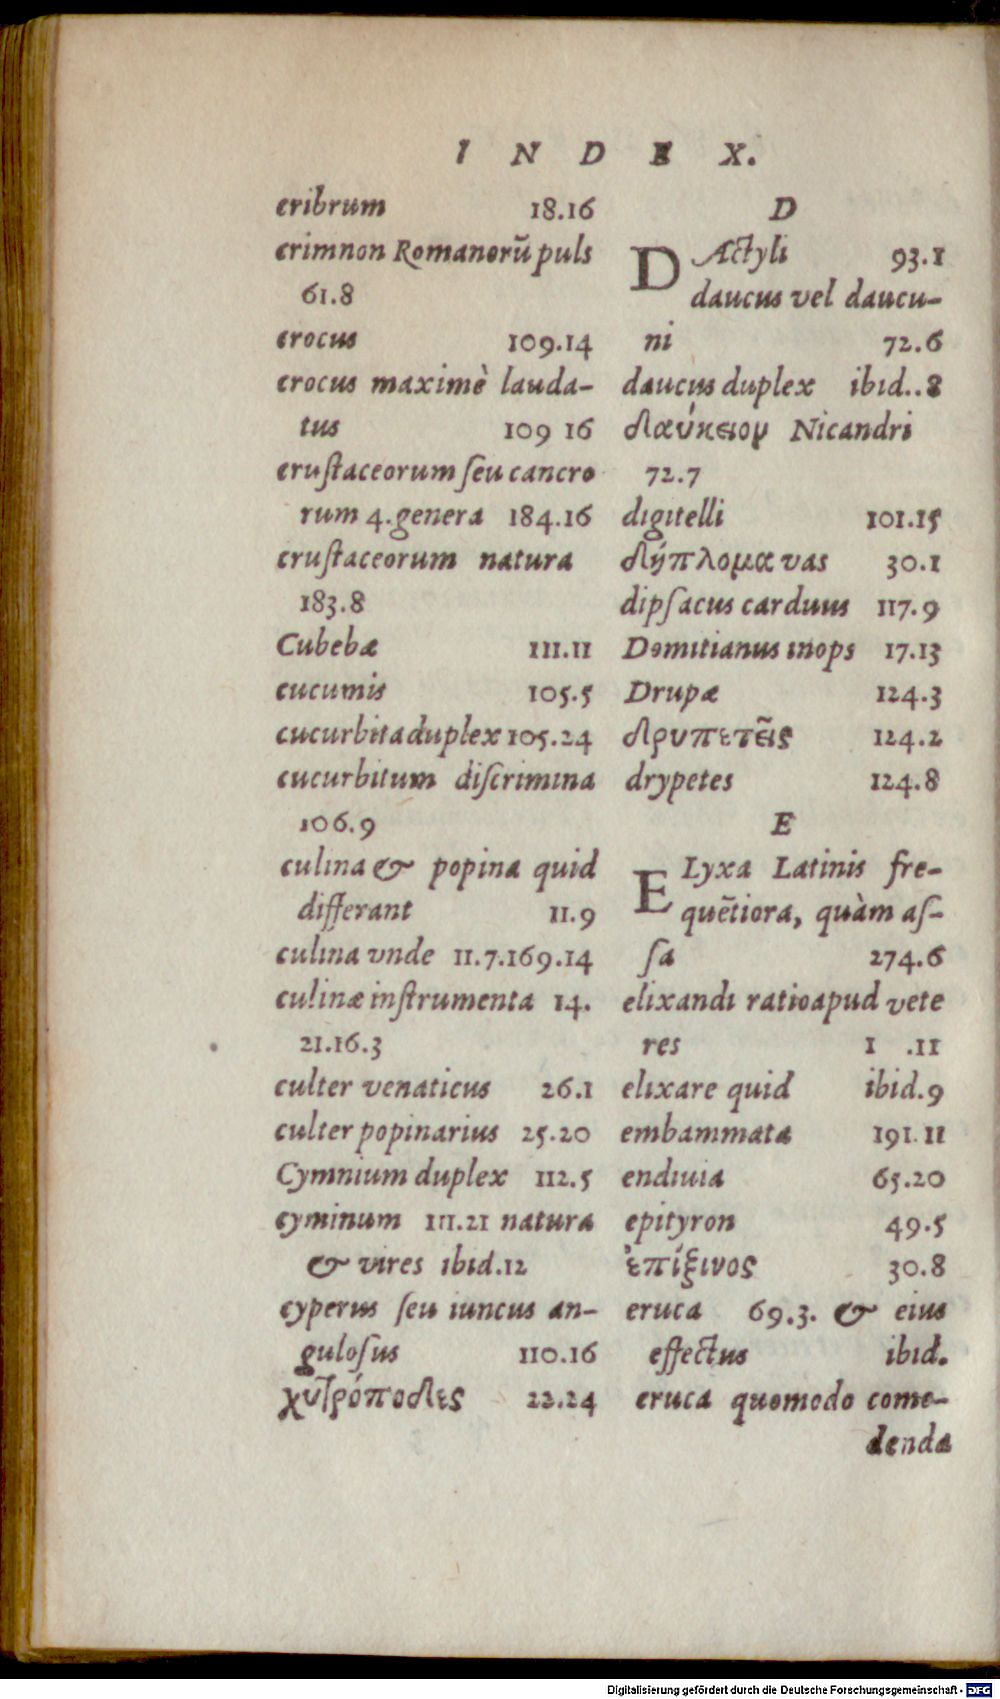 INDEX.
cribrum 18.16
crimnon Romanorũ puls
61.8
crocus 109.14
crocus maximè lauda-
tus 109 16
crustaceorum seu cancro
rum 4. genera 184.16
crustaceorum natura
183.8
Cubebæ 111.11
cucumis 105.5
cucurbita duplex 105.24
cucurbitum discrimina
106.9
culina & popina quid
differant 11.9
culina vnde 11.7.169.14
culinæ instrumenta 14.
21.16.3
culter venaticus 26.1
culter popinarius 25.20
Cymnium duplex 112.5
cyminum 111.21 natura
& vires ibid.12
cyperus seu iuncus an-
gulosus 110.16
χυτρόποδες 22.24
D
DActyli 93.1
daucus vel daucu-
ni 72.6
daucus duplex ibid..8
δαύκειον Nicandri
72.7
digitelli 101.15
δίπλομα vas 30.1
dipsacus carduus 117.9
Domitianus inops 17.13
Drupæ 124.3
δρυπετεῖς 124.2
drypetes 124.8
E
ELyxa Latinis fre-
quẽtiora, quàm as-
sa 274.6
elixandi ratio apud vete
res 1 .11
elixare quid ibid.9
embammata 191.11
endiuia 65.20
epityron 49.5
ἐπίξινος 30.8
eruca 69.3. & eius
effectus ibid.
eruca quomodo come-
denda
Digitalisierung gefördert durch die Deutsche Forschungsgemeinschaft - DFG